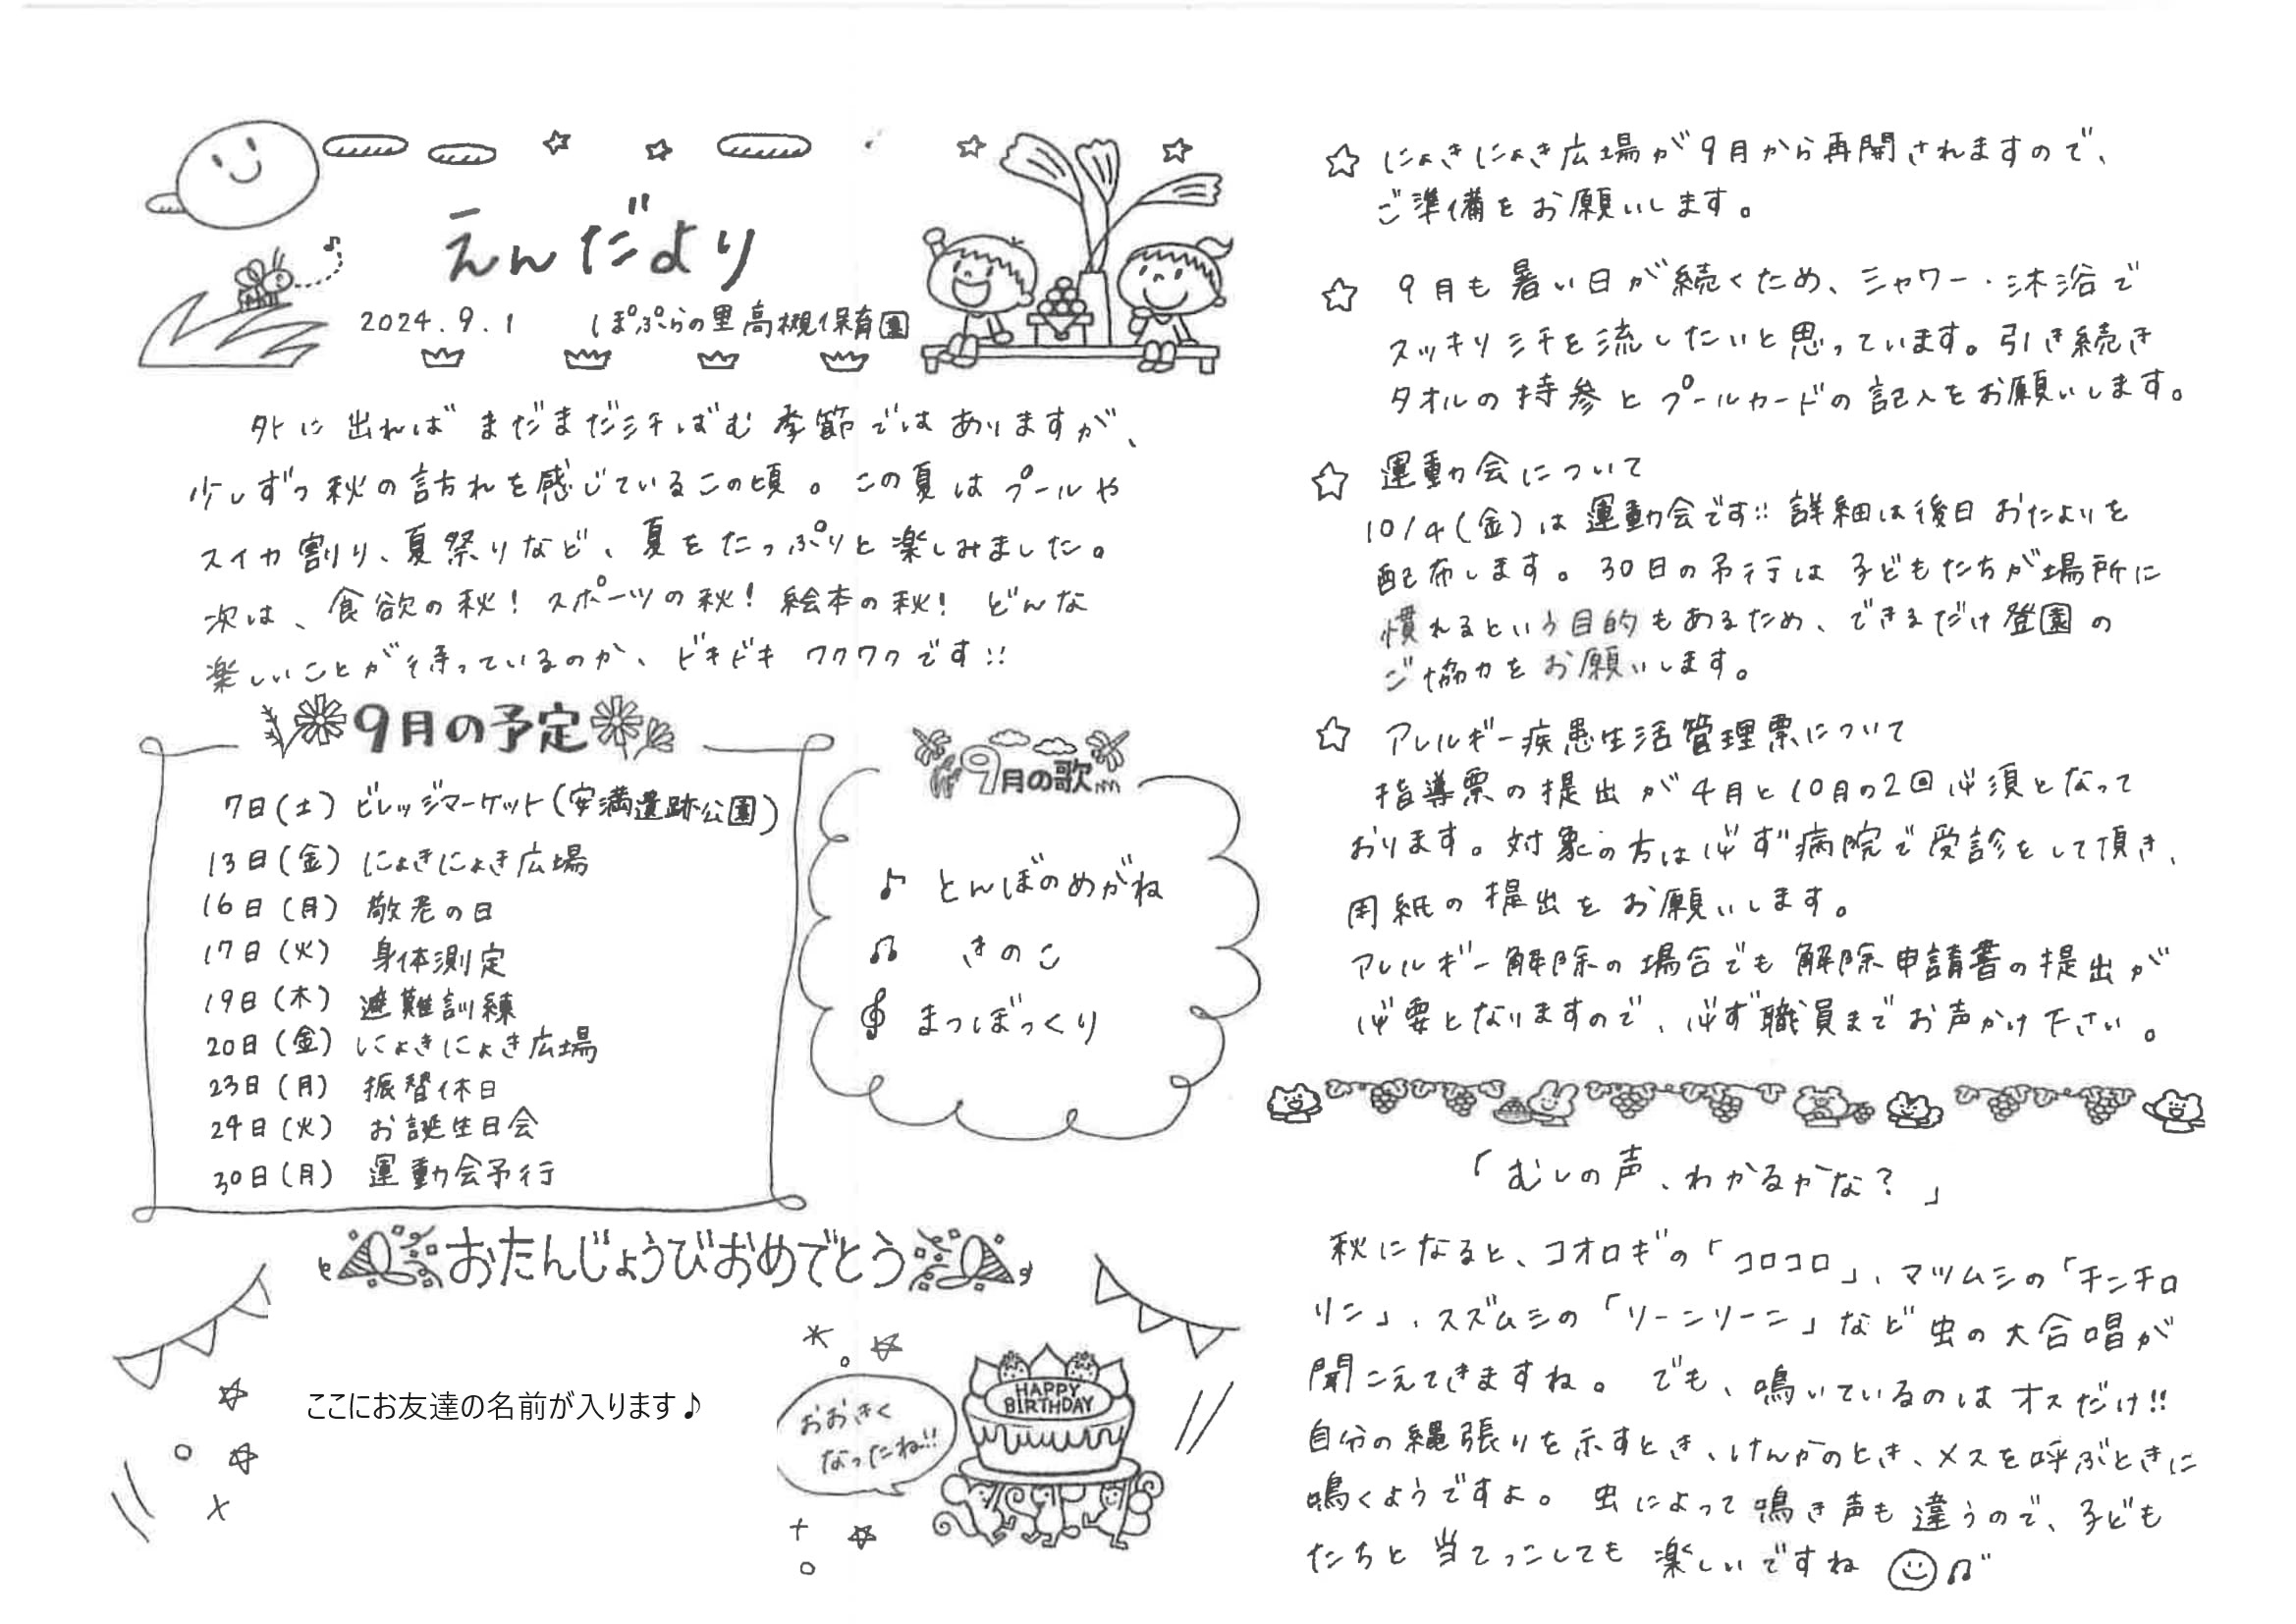 えんだより
2024.9.1 ぽぷらの里高槻保育園
外に出ればまだまだ汗ばむ季節ではありますが、
少しずつ秋の訪れを感じているこの頃。この夏はプールや
スイカ割り、夏祭りなど、夏をたっぷりと楽しみました。
次は、食欲の秋!スポーツの秋!絵本の秋!どんな
楽しいことが待っているのか、ドキドキワクワクです!!
9月の予定
7日(土) ビレッジマーケット(安満遺跡公園)
13日(金) にょきにょき広場
16日(月) 敬老の日
17日(火) 身体測定
19日(木) 避難訓練
20日(金) にょきにょき広場
23日(月) 振替休日
24日(火) お誕生日会
30日(月) 運動会予行
9月の歌
♪ とんぼのめがね
♫ きのこ
𝄞 まつぼっくり
おたんじょうびおめでとう
ここにお友達の名前が入ります♪
おおきく
なったね!!
HAPPY
BIRTHDAY
☆ にょきにょき広場が9月から再開されますので、
ご準備をお願いします。
☆ 9月も暑い日が続くため、シャワー・沐浴で
スッキリ汗を流したいと思っています。引き続き
タオルの持参とプールカードの記入をお願いします。
☆ 運動会について
10/4(金)は運動会です!!詳細は後日おたよりを
配布します。30日の予行は子どもたちが場所に
慣れるという目的もあるため、できるだけ登園の
ご協力をお願いします。
☆ アレルギー疾患生活管理票について
指導票の提出が4月と10月の2回必須となって
おります。対象の方は必ず病院で受診をして頂き、
用紙の提出をお願いします。
アレルギー解除の場合でも解除申請書の提出が
必要となりますので、必ず職員までお声かけ下さい。
「むしの声、わかるかな?」
秋になると、コオロギの「コロコロ」、マツムシの「チンチロ
リン」、スズムシの「リーンリーン」など虫の大合唱が
聞こえてきますね。でも、鳴いているのはオスだけ!!
自分の縄張りを示すとき、けんかのとき、メスを呼ぶときに
鳴くようですよ。虫によって鳴き声も違うので、子ども
たちと当てっこしても楽しいですね